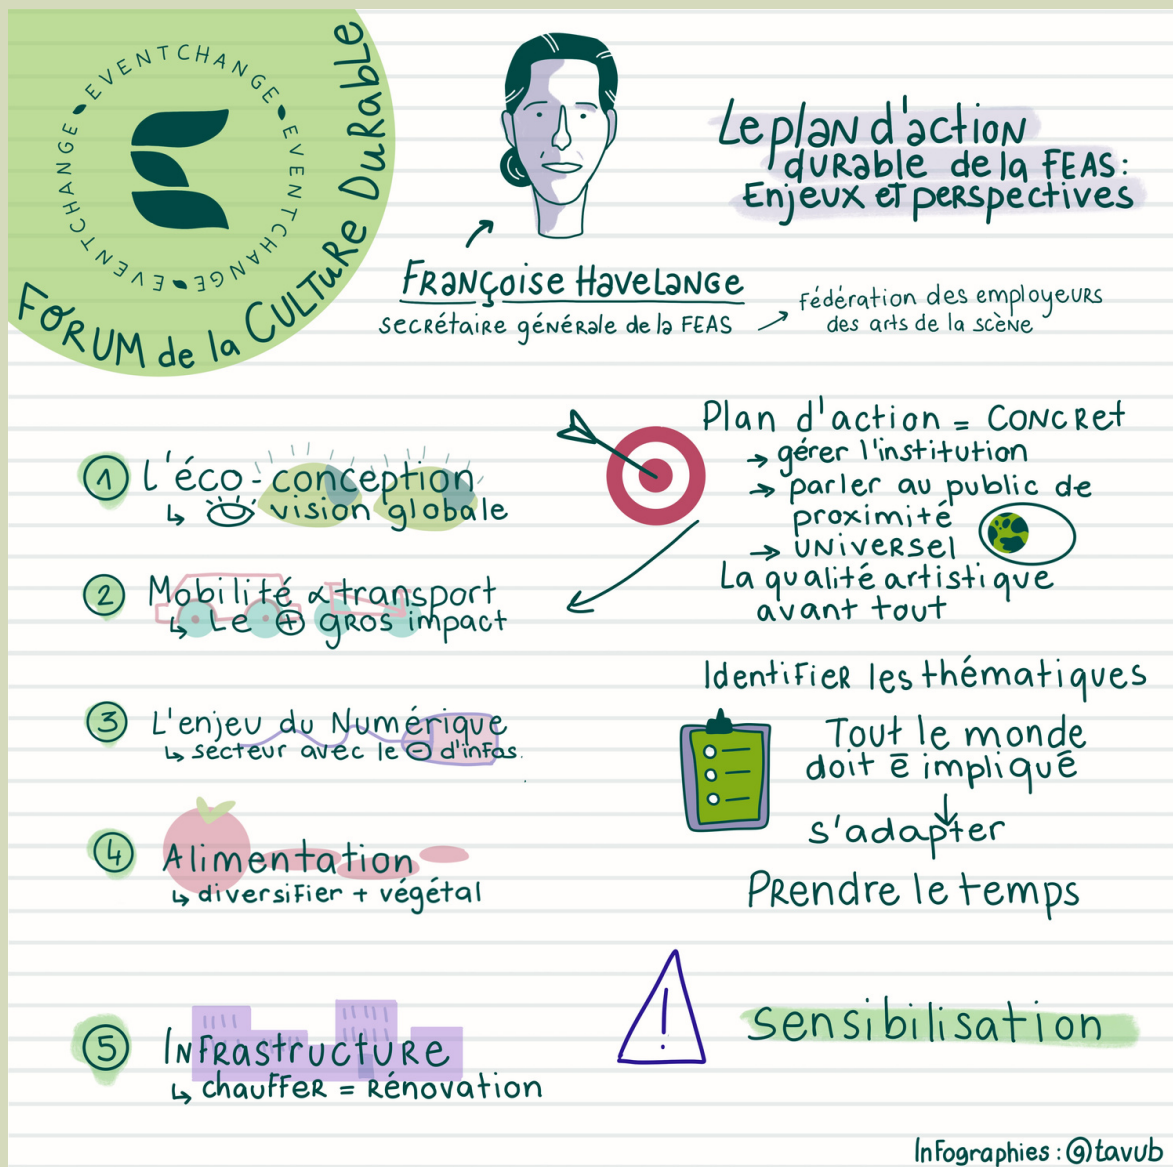 EVENTCHANGE • EVENTCHANGE • EVENTCHANGE • EVENTCHANGE
FORUM de la CULTURE DURABLE
Le plan d'action
durable de la FEAS:
Enjeux et perspectives
Françoise Havelange
secrétaire générale de la FEAS
Fédération des employeurs
des arts de la scène
1 L'éco-conception
↳ vision globale
2 Mobilité & transport
↳ Le ⊕ gros impact
3 L'enjeu du Numérique
↳ secteur avec le ⊖ d'infos.
4 Alimentation
↳ diversifier + végétal
5 Infrastructure
↳ chauffer = Rénovation
Plan d'action = CONCRET
→ gérer l'institution
→ parler au public de
proximité
→ UNIVERSEL
La qualité artistique
avant tout
Identifier les thématiques
Tout le monde
doit ē impliqué
↓
s'adapter
Prendre le temps
!
Sensibilisation
Infographies : @tavub